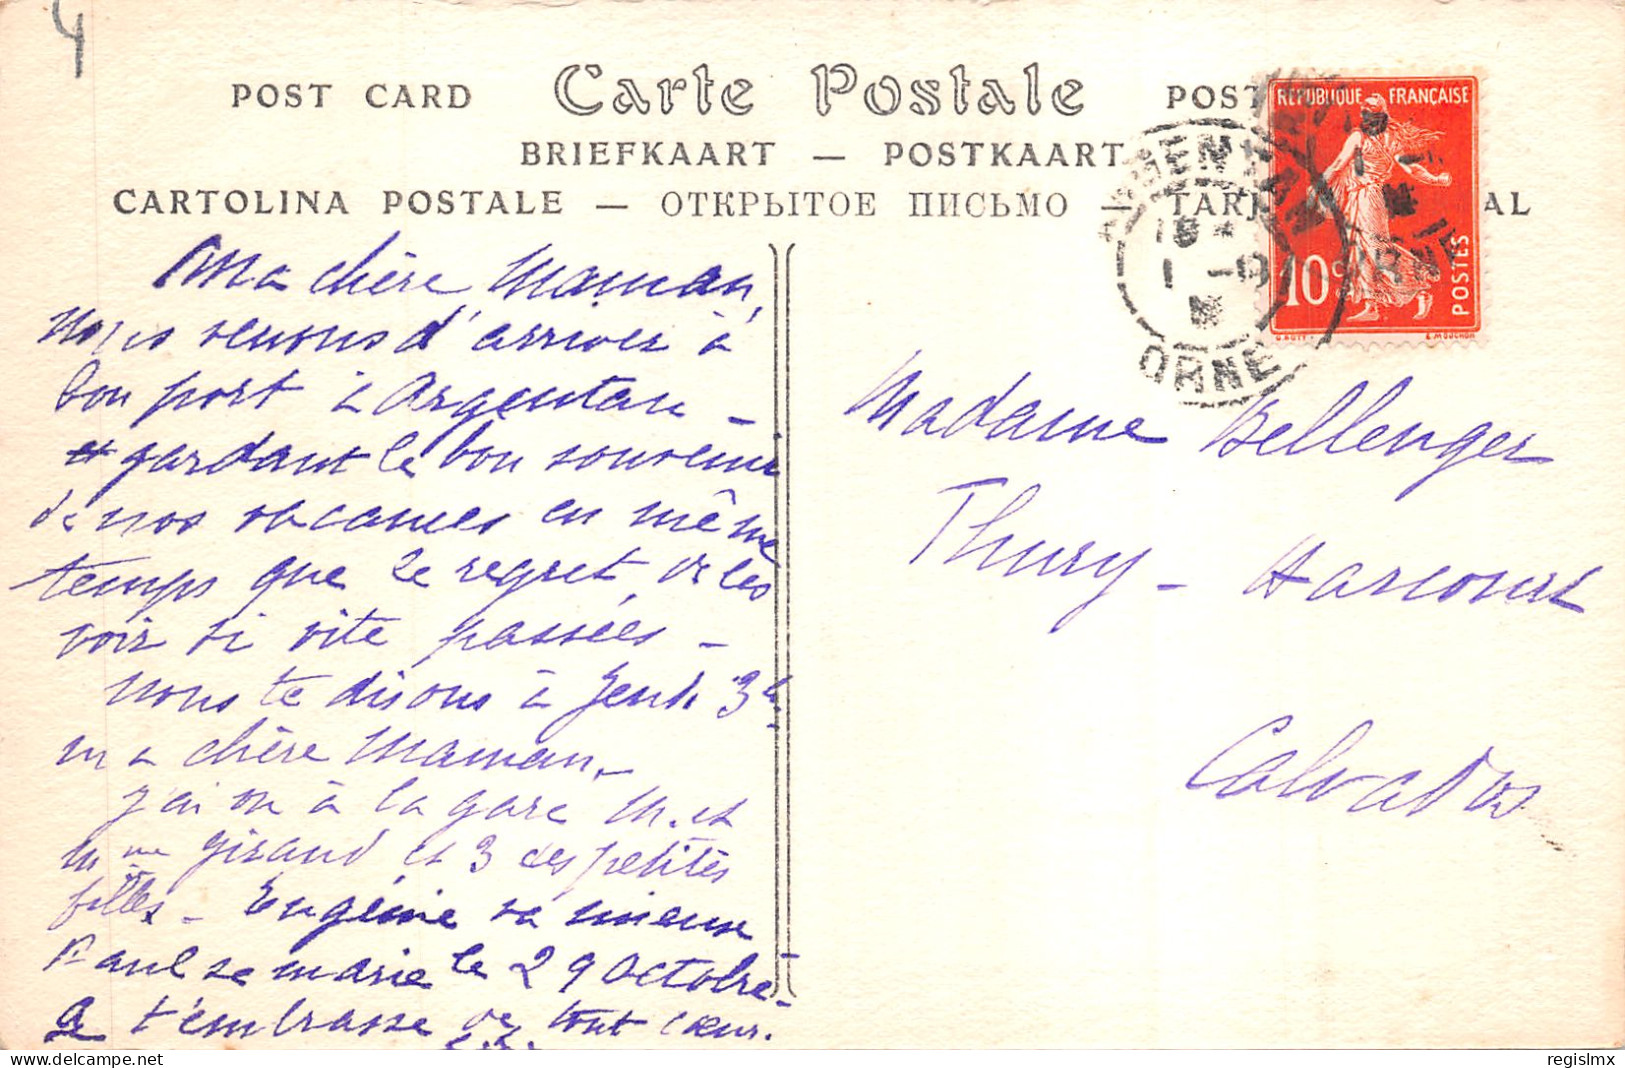 4
POST CARD Carte Postale POST
BRIEFKAART — POSTKAART
CARTOLINA POSTALE — ОТКРЫТОЕ ПИСЬМО — TARJ AL
REPUBLIQUE FRANÇAISE
10 c
POSTES
O. ROTY
E. MOUCHON
ARGENTAN
ORNE
Ma chère Maman,
Nous venons d'arriver à
bon port à Argentan -
et gardant le bon souvenir
de nos vacances en même
temps que le regret de les
voir si vite passées -
nous te disons à Jeudi 3h.
ma chère Maman -
j'ai vu à la gare M. et
Mme Giraud et 3 des petites
filles - Eugénie va mieux
Paul se marie le 29 Octobre -
t'embrasse de tout cœur.
Madame Bellenger
Thury-Harcourt
Calvados
regislmx